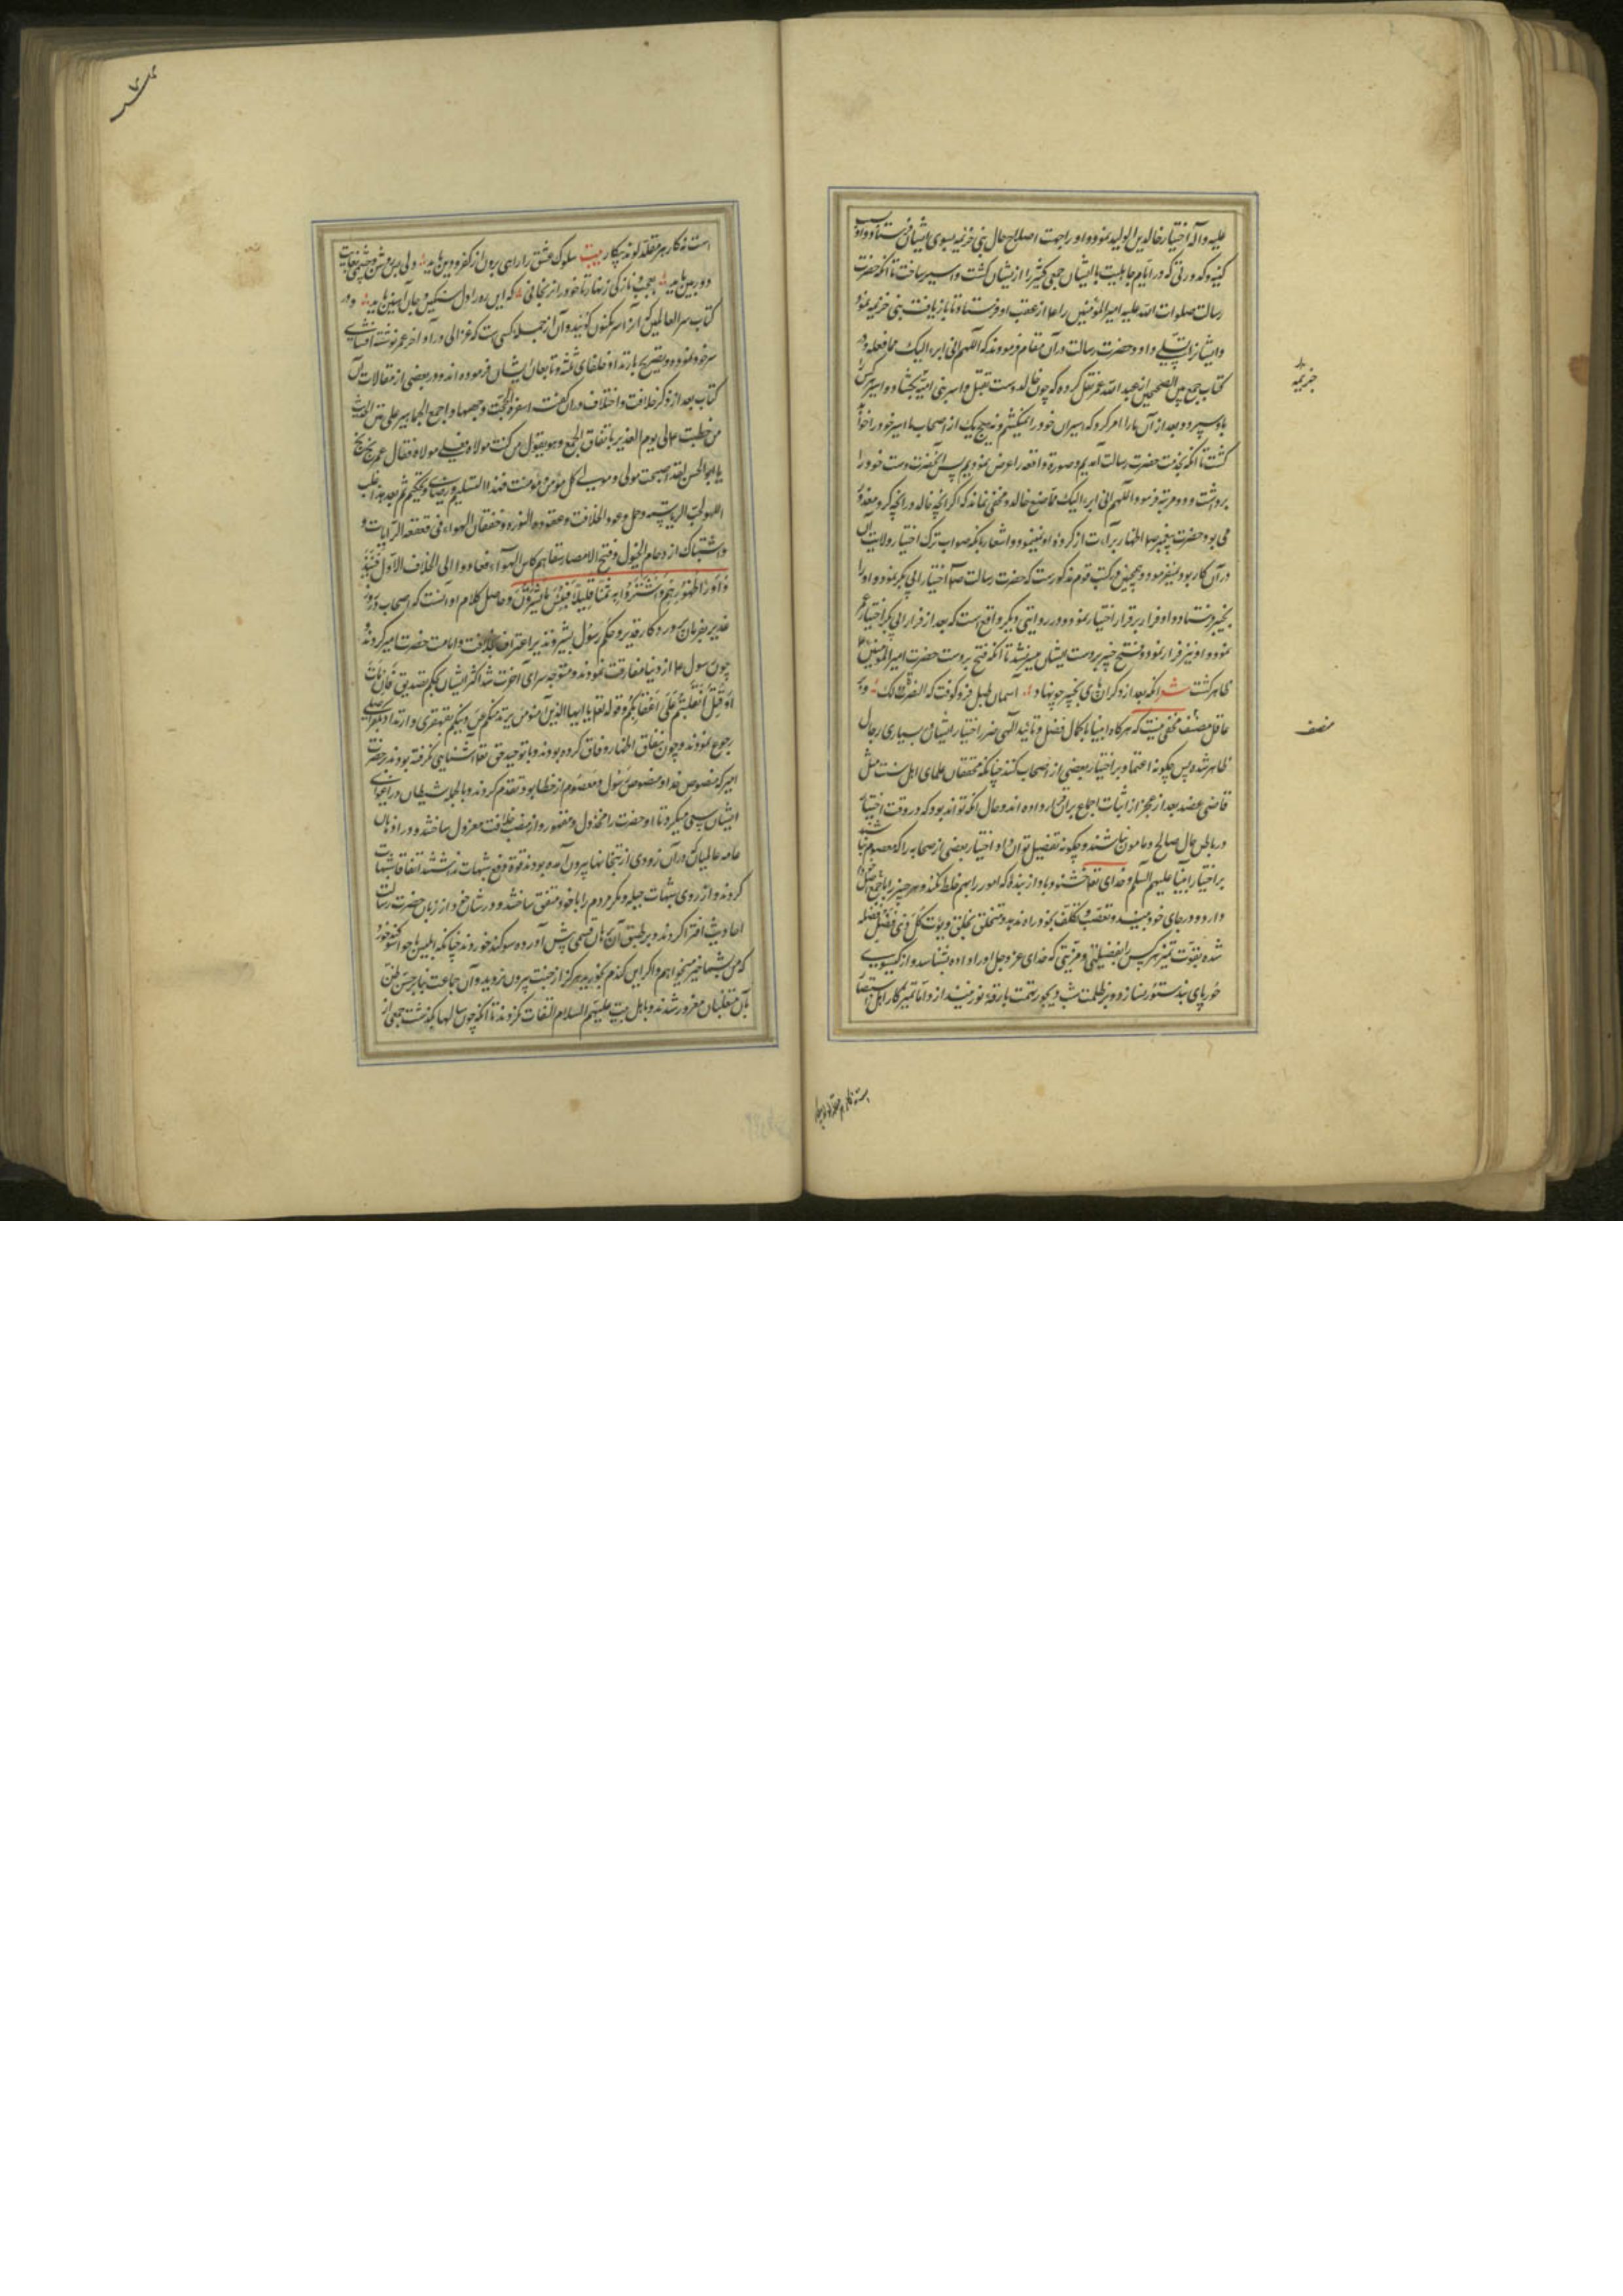 علیه وآله اختیار خالد بن الولید نمود و او را جهت اصلاح حال بنی خزیمه بسوی ایشان فرستاد و او
کینه و کدورتی که در ایام جاهلیت با ایشان جمعی کثیر را از یشان کشت و اسیر ساخت تا آنکه حضرت
رسالت صلوات الله علیه امیر المؤمنین را از عقب او فرستاد تا بازیافت بنی خزیمه نمود
وایشانرا تسلی داد و حضرت رسالت در آن مقام فرمودند که اللهم انی ابرء الیک مما فعله و در
کتاب جمع بین الصحیحین از عبد الله عمر نقل کرده که چون خالد دست بقتل و اسر بنی امیه بگشاد و اسیر هر کس را
باو سپرد و بعد از آن ما را امر کرد که اسیران خود را بکشیم و نه هیچ یک از اصحاب ما اسیر خود را
کشت تا آنکه بخدمت حضرت رسالت آمدیم و صورة واقعه را عرض نمودیم پس آنحضرت دست خود را
برداشت و دو مرتبه فرمود اللهم انی ابرء الیک مما صنع خالد و مخفی نماند که اگر آنچه خالد در آنچه کرد معذور
می بود حضرت پیغمبر صلعم اظهار برآءت از کرده او نمینمود و اشعار بانکه صواب ترک اختیار ولایت آن
در آن کار بود نمیفرمود و همچنین در کتب قوم مذکورست که حضرت رسالت صلعم اختیار ابی بکر نمود و او را
بخیبر فرستاد و او فرار بر قرار اختیار نمود و در روایتی دیگر واقع است که بعد از فرار ابی بکر اختیار عمر
نمود و او نیز فرار نمود و فتح خیبر بر دست ایشان میسر نشد تا آنکه فتح بر دست حضرت امیر المؤمنین
ظاهر کشت شعر آنکه بعد از دکران های بخیبر چو نهاد آسمان طبل فرو کوفت که النصرة لک و بر
عاقل منصف مخفی نیست که هرکاه انبیا با کمال فضل و تائید آلهی ضرر اختیار ایشان در بسیاری رجال
ظاهر شده پس چکونه اعتماد بر اختیار بعضی از اصحاب کنند چنانکه محققان علمای اهل سنت مثل
قاضی عضد بعد از عجز از اثبات اجماع بران قرار داده اند و حال آنکه تواند بود که در وقت اختیار
در باطن حال صالح و مامون نباشند و چکونه تفضیل توان داد اختیار بعضی از صحابه را که معصوم نباشند
بر اختیار انبیا علیهم السلم و خدای تعالی خشنود باد از بنده که امور را بهم خلط نکند و هر چیز را
دارد و در جای خود بیند و تعصب و تکلف بخود راه ندهد و متخلق بخلق و یؤت کل ذی فضل فضله
شده بقوت تمیز هر کس را بفضیلتی و مزیتی که خدای عز و جل او را داده بشناسد و از کیسوی
حور پای بند ستور نسازد و بر ظلمت شب دیجور تهمت بارقه نور نیندازد و اما تمیز کار اهل
خزیمه
منصف
است نه کار هر مقلد لوند بیکار
است نه کار هر مقلد لوند بیکار بیت سلوک عشق را راهی برون از کفر و دین باید ولی بس روشن و چشمی بغایت
دوربین باید عجب نازکی زنهار تا خود را نرنجانی که این ره را دل سنکین و جان آهنین باید و در
کتاب سر العالمین که آنرا سر مکنون کویند و آن از جمله کتبی است که غزالی در اواخر عمر نوشته افشای
سر خود نموده و تصریح بارتداد خلفای ثلثه و تابعان ایشان فرموده اند و در بعضی از مقالات آن
کتاب بعد از ذکر خلافت و اختلاف در آن کفته اسفرت الحجة وجهها و اجمع الجماهیر علی متن الحدیث
من خطبته ع م فی یوم الغدیر باتفاق الجمع و هو یقول من کنت مولاه فعلی مولاه فقال عمر بخ بخ
یا ابا الحسن لقد اصبحت مولی و مولی کل مؤمن و مؤمنة فهذا التسلیم و رضای و تحکیم ثم بعد هذا غلب
الهوی لحب الریاسة و حمل عمود الخلافت و عقود البنود و خفقان الهواء فی قعقعة الرایات و
و اشتباک ازدحام الخیول و فتح الامصار سقاهم کاس الهوآء فعادوا الی الخلاف الاول فنبذ
وه وراء ظهورهم و اشتروا به ثمنا قلیلا فبئس ما یشترون و حاصل کلام او آنست که اصحاب در روز
غدیر بفرمان پروردکار قدیر و حکم رسول بشیر و نذیر اعتراف بخلافت و امامت حضرت امیر کردند و
چون رسول ع م از دنیا مفارقت نمودند و متوجه سرای آخرت شد اکثر ایشان بحکم تصدیق فان مات
او قتل انقلبتم علی اعقابکم و قوله تعالی یا ایها الذین آمنوا من یرتد منکم عن دینکم تقهقری و ارتداد بکفر اصلی
رجوع نمودند و چون بنفاق اظهار وفاق کرده بودند و با توحید حق تعالی آشنایی نکرفته بودند بر حضرت
امیر که منصوص خدا و منصوص رسول و معصوم از خطا بود تقدم کردند و بالجمله شیطان در اغوای
ایشان سعی میکرد تا او حضرت را مخذول و مقهور و از منصب خلافت معزول ساختند و در اذهان
عامه عالمیان که در آن زودی از بتخانها بیرون آمده بودند قوة دفع شبهات نداشتند القا شبهات
کردند و از روی شبهات حیله و مکر مردم را با خود متفق ساختند و در شان خود از زبان حضرت رسالت
احادیث افترا کردند و بر طبق آن بآن قسمی پیش آورده سوکند خوردند چنانکه ابلیس با حوا سوکند خورد
که من بشما خیر میخواهم و اکر این کندم بخورید هرکز از جنت بیرون نروید و آن جماعت بنابر حسن ظن
بآن متغلبان مغرور شدند و باهل بیت علیهم السلام التفات نکردند تا آنکه چون سالها بکذشت جمعی از